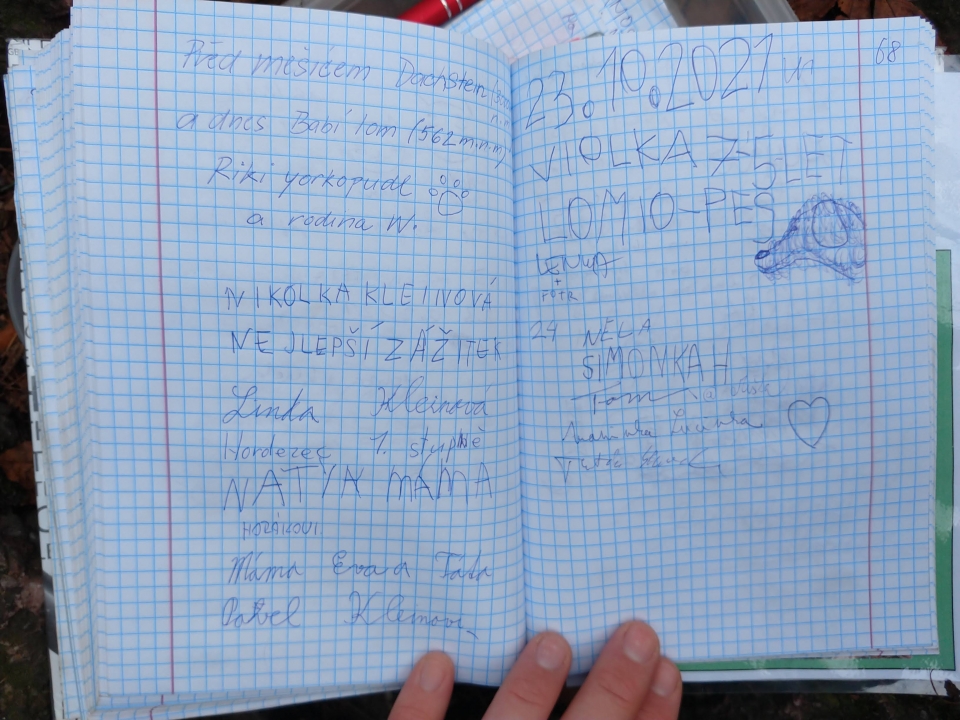 Před měsícem Dachstein
a dnes Babí lom (562 m.n.m)
Riki yorkopudl
a rodina W.
NIKOLKA KLEINOVÁ
NEJLEPŠÍ ZÁŽITEK
Linda Kleinová
Horolezec 1. stupně
NATYN MÁMA
HORÁKOVI
Máma Eva a Táta
Pavel Kleinovi
68
23.10.2021
VIOLKA 7-5LET
LOMIO-PES
LENKA
+
FOTR
24 NELA
SIMONKA H
Tom
Maminka